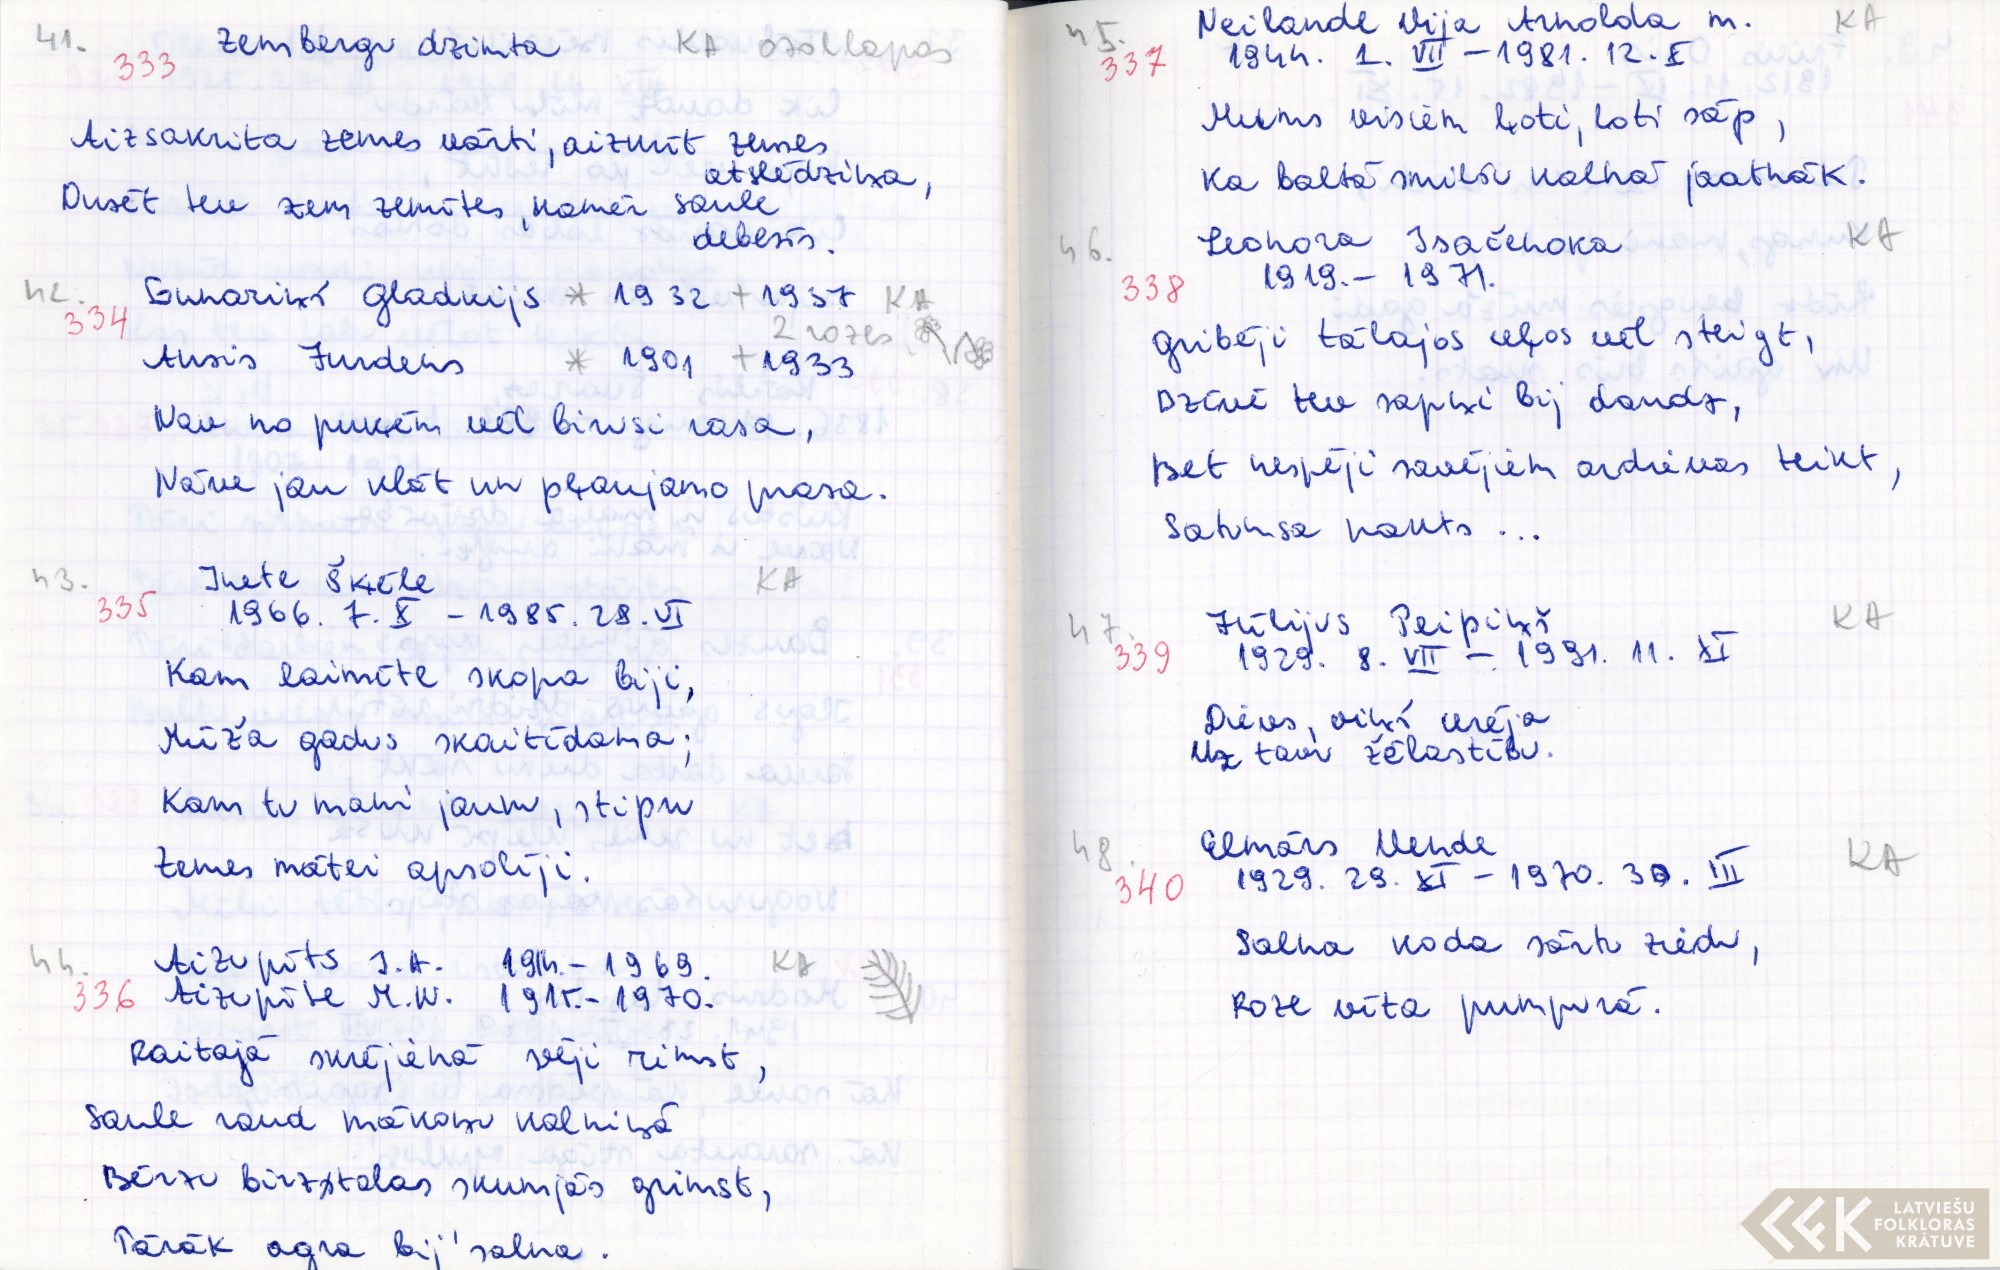 41. 333 Zembergu dzimta KA ozollapas
Aizsakrita zemes vārti, aizkrīt zemes
atslēdziņa,
Dusēt tev zem zemītes, kamēr saule
debesīs.
42. 334 Gunariņš Gladkijs * 1932 + 1937 KA
2 rozes
Ansis Jurdens * 1901 + 1933
Nav no puķēm vēl birusi rasa,
Nāve jau klāt un pļaujamo prasa.
43. 335 Inete Šķēle KA
1966. 7. X – 1985. 28. VI
Kam laimīte skopa biji,
Mūža gadus skaitīdama;
Kam tu mani jaunu, stipru
Zemes mātei apsolīji.
44. 336 Aizupīts J. A. 1914. – 1969. KA
Aizupīte M. W. 1915. – 1970.
Raitajā skrējienā vēji rimst,
Saule raud mākoņu kalniņā
Bērzu birztalas skumjās grimst,
Pārāk agra bij' salna.
45. 337 Neilande Vija Arnolda m. KA
1944. 1. VII – 1981. 12. X
Mums visiem ļoti, ļoti sāp,
Ka baltā smilšu kalnā jāatnāk.
46. 338 Leonora Isačenoka KA
1919. – 1971.
Gribēji tālajos ceļos vēl steigt,
Dzīvē tev sapņi bij daudz,
Bet nespēji savējiem ardievas teikt,
Satumsa nakts ...
47. 339 Jūlijus Peipiņš KA
1929. 8. VII – 1991. 11. XI
Dievs, viņš cerēja
Uz tavu žēlastību.
48. 340 Elmārs Mende KA
1929. 29. XI – 1970. 30. III
Salna koda sārtu ziedu,
Roze vīta pumpurā.
LATVIEŠU
FOLKLORAS
KRĀTUVE